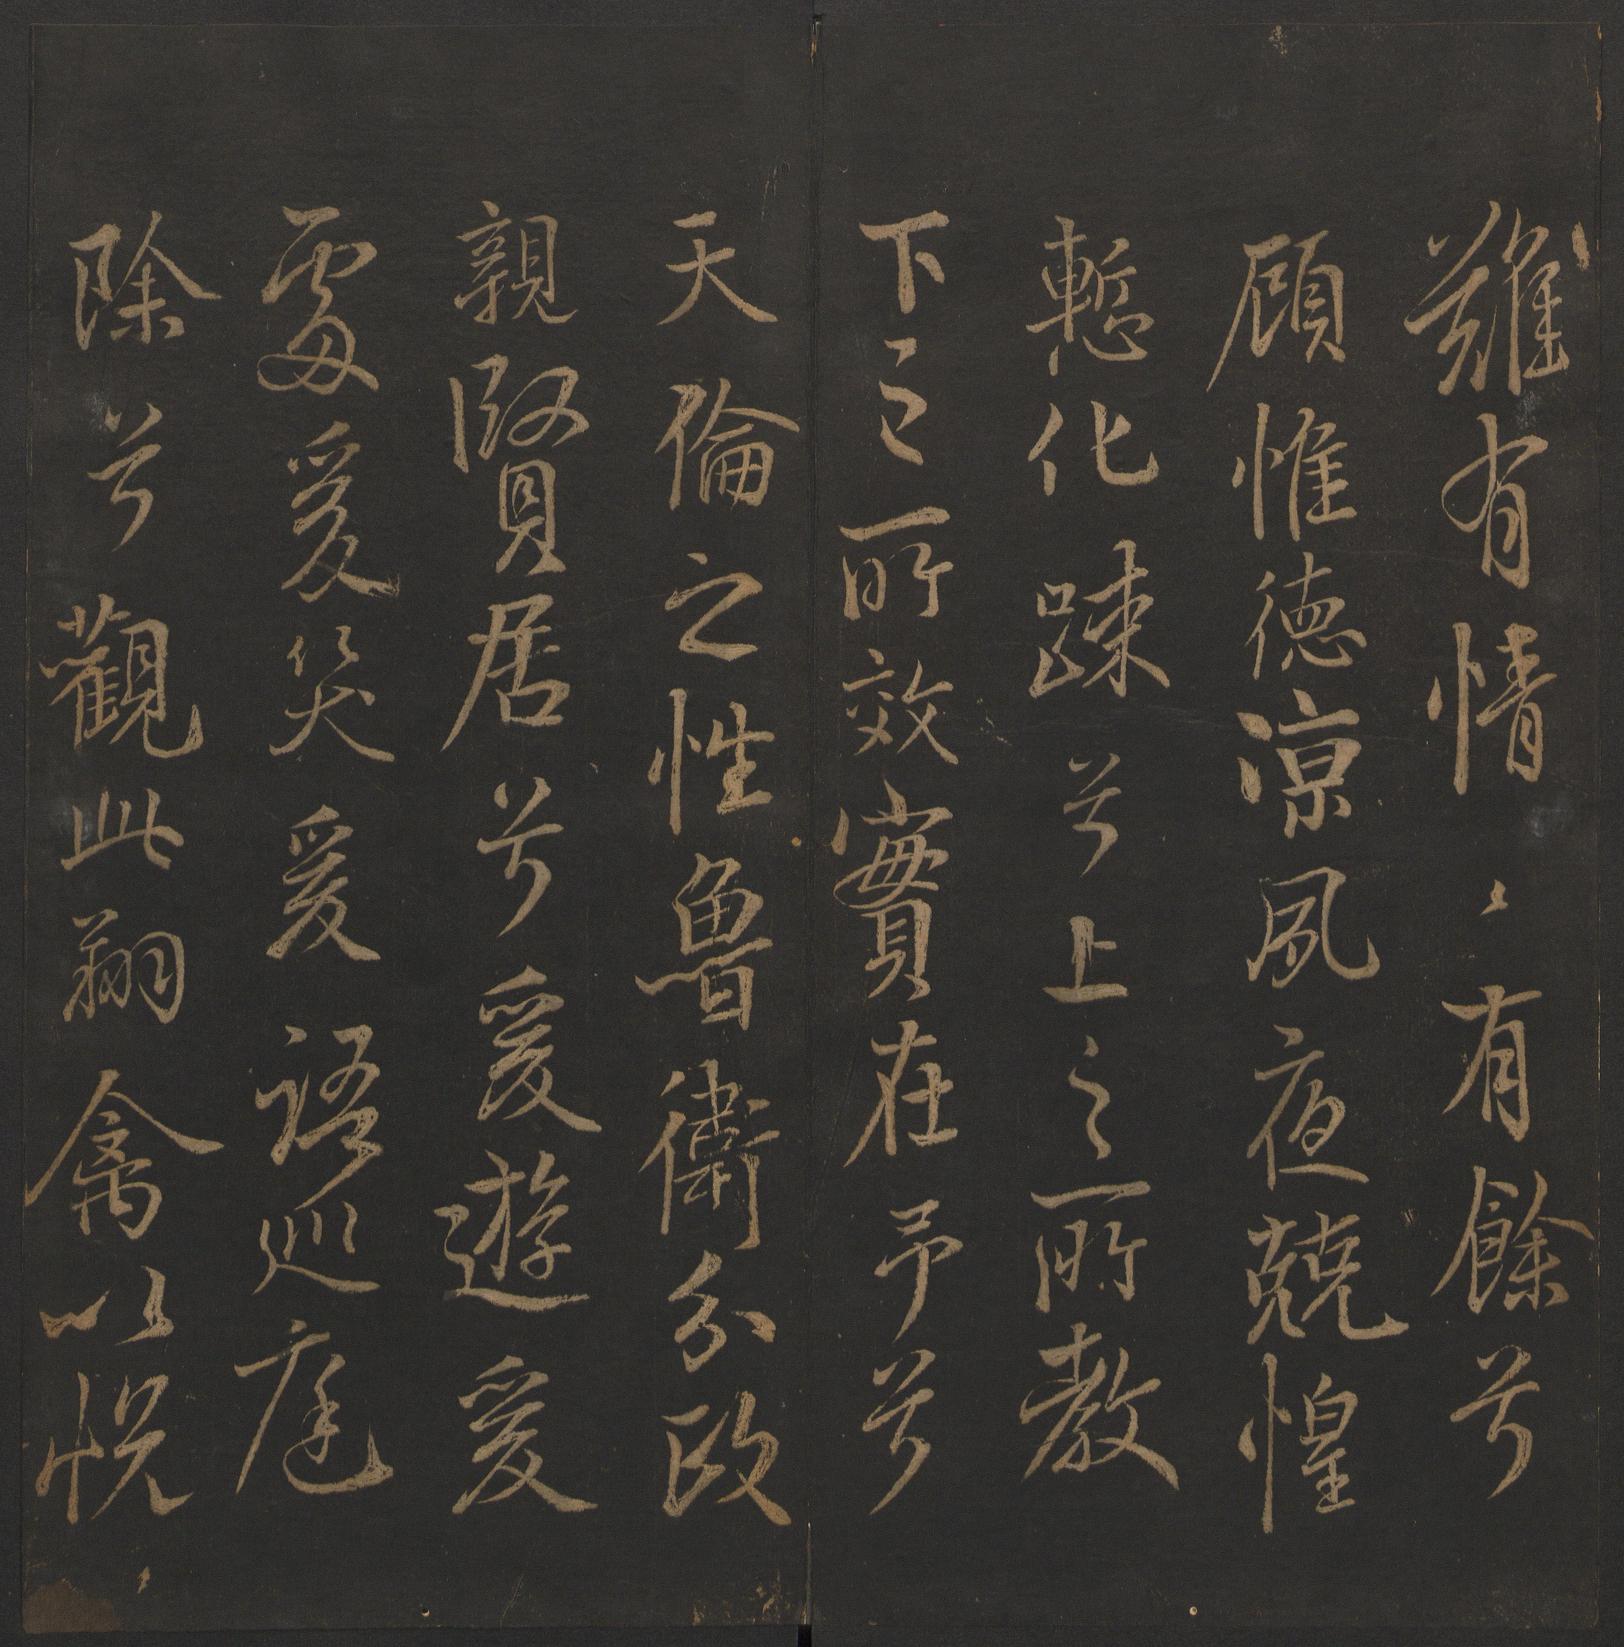 雖有情〻有餘兮
顧惟德涼夙夜兢惶
慙化踈兮上之所教
下之所效實在予兮
天倫之性魯衛分政
親賢居兮爰遊爰
處爰笑爰語巡庭
除兮觀此翔禽以悅